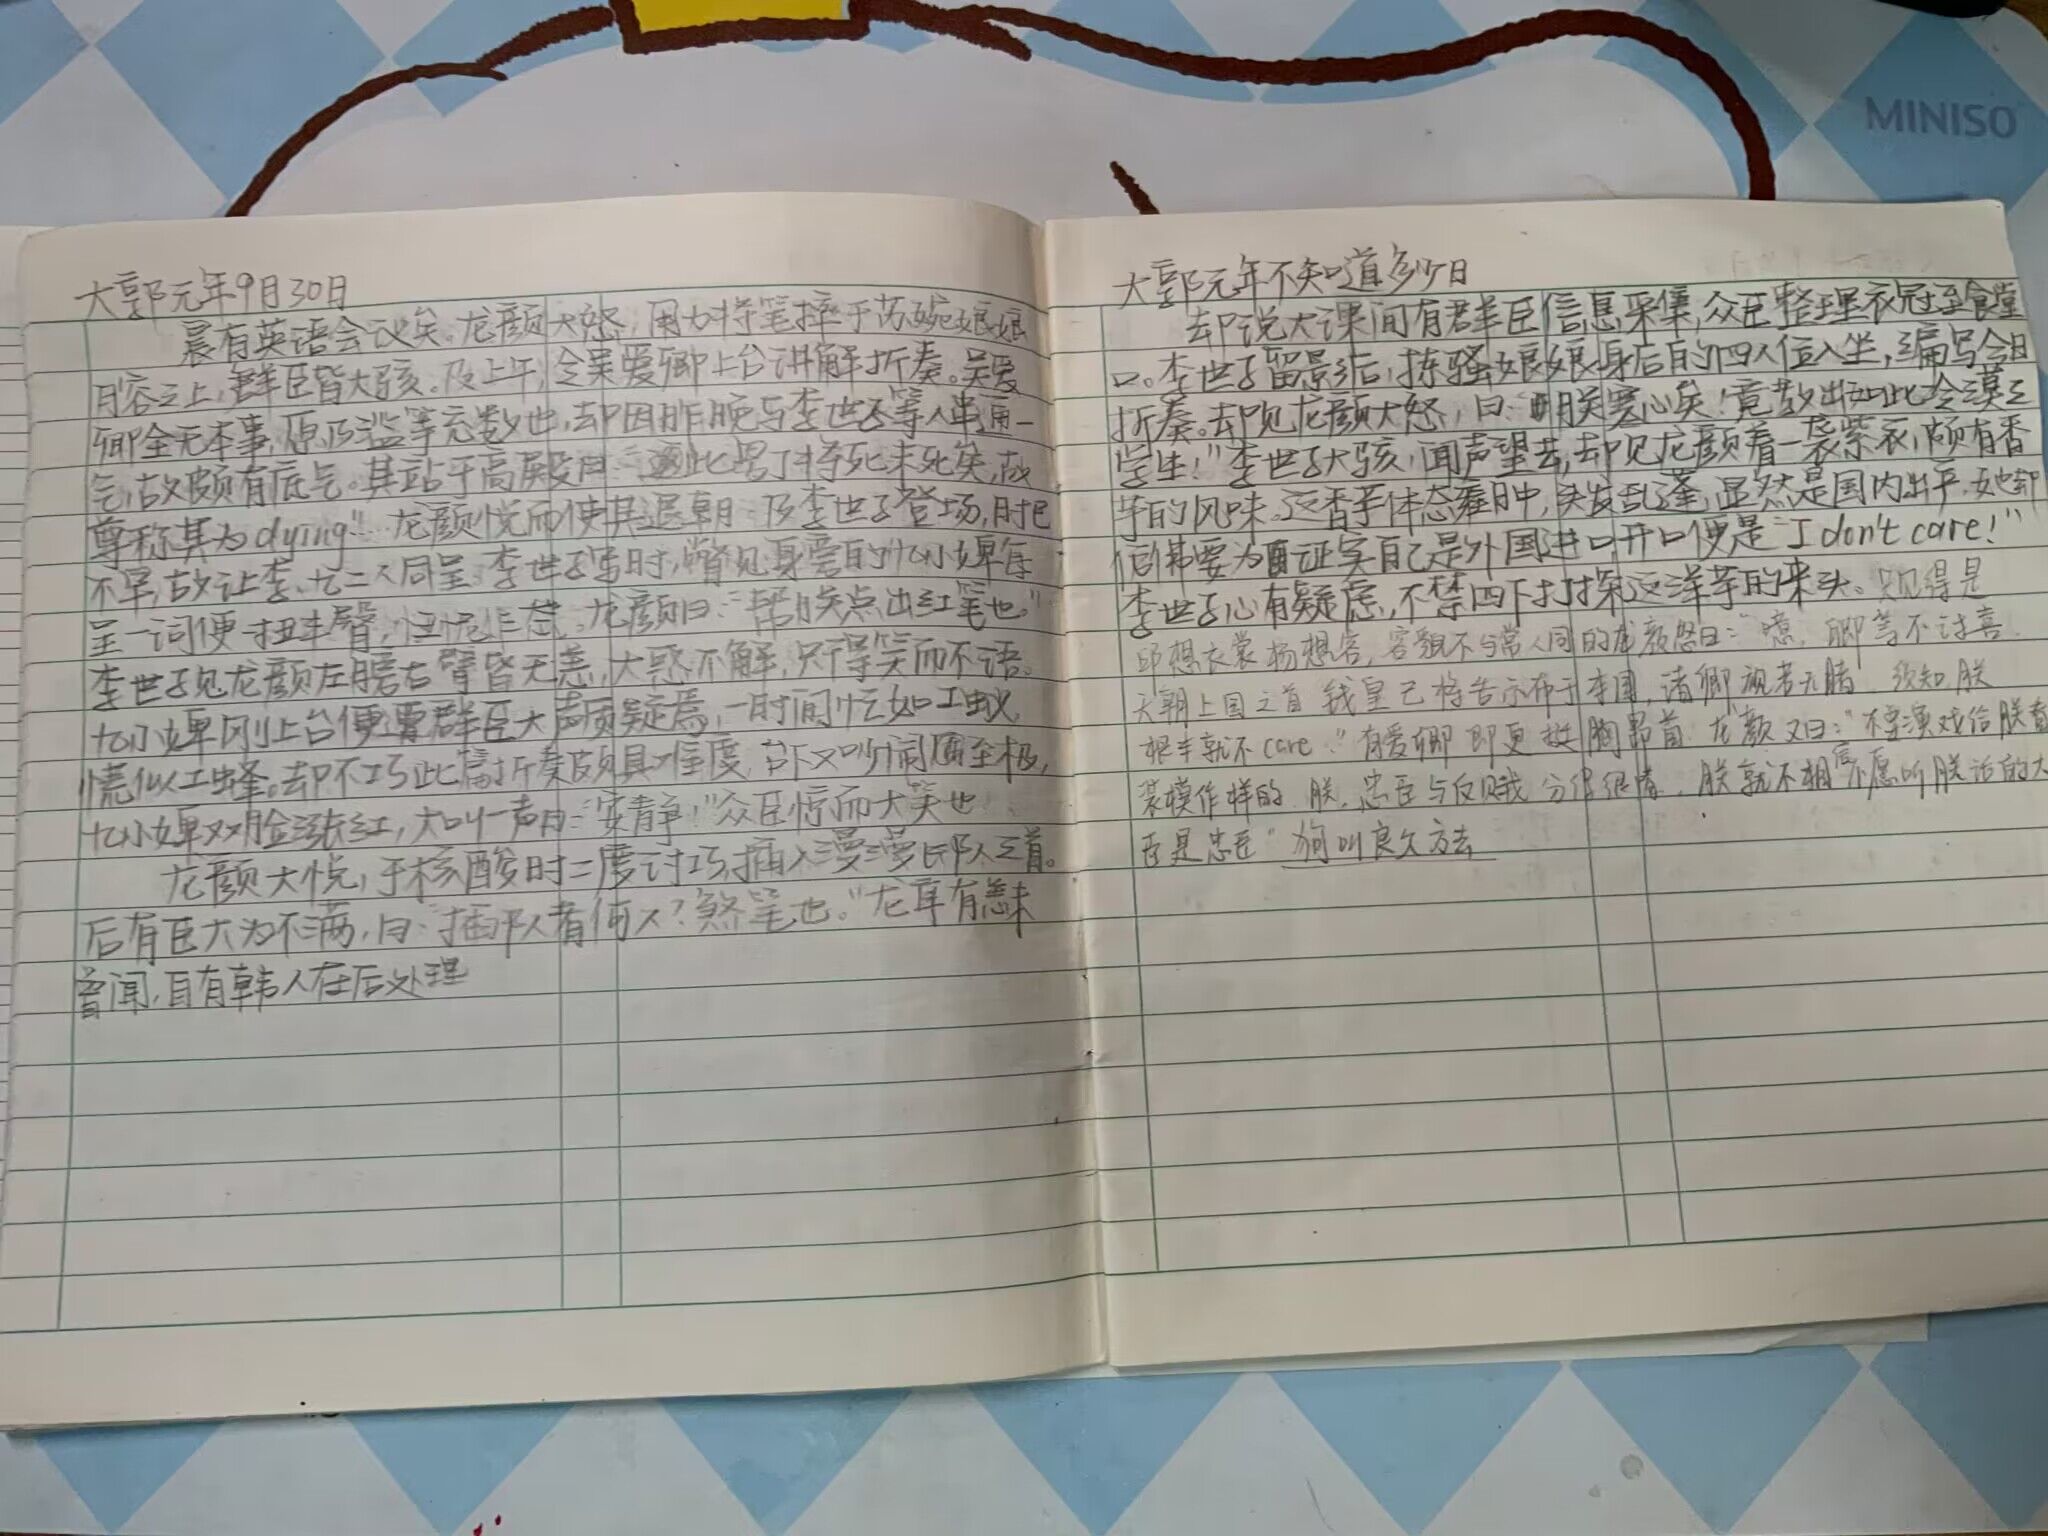 MINISO
大郭元年9月30日
晨有英语会议矣。龙颜大怒，用力将笔摔于苏婉娘娘
月容之上，群臣皆大骇。及上午，令吴爱卿上台讲解折奏。吴爱
卿全无本事，原乃滥竽充数也，却因昨晚与李世子等人串通一
气，故颇有底气。其站于高殿曰："此罢了将死未死矣，故
尊称其为dying"。龙颜悦而使其退朝。及李世子登场，时已
不早，故让李、尢二人同呈。李世子写时，瞥见身旁的尢小婢每
呈一词便扭半臀，龙颜曰："帮朕点出红笔也。"
李世子见龙颜左膀右臂皆无恙，大惑不解，只得笑而不语。
尢小婢刚上台便遭群臣大声质疑焉，一时间忙如工蚁，
慌似工蜂。却不巧此篇折奏颇具难度，台下又吵闹至极，
尢小婢双脸涨红，大叫一声曰："安静！"众臣惊而大笑也
龙颜大悦，于核酸时二度讨巧，插入漫漫长队之首。
后有臣大为不满，曰："插队者何人？煞笔也。"龙耳有恙未
曾闻，自有韩人在后处理
大郭元年不知道多少日
却说大课间有群臣信息采集，众臣整理衣冠至食堂
口。李世子留影后，拣骚娘娘身后的四人位入坐，编写今日
折奏。却见龙颜大怒，曰："朕寒心矣！竟教出如此冷漠之
学生！"李世子大骇，闻声望去，却见龙颜着一袭紫衣，颇有香
芋的风味。这香芋体态雍肿，头发乱蓬，显然是国内出产，她却
仿佛要为证实自己是外国进口，开口便是"I don't care！"
李世子心有疑虑，不禁四下打探这洋芋的来头。只见得是
邱想衣裳杨想容，容貌不与常人同的龙颜怒曰："噫，卿等不讨喜
天朝上国之首 我皇已将告示布于李国，诸卿视若无睹 须知朕
根本就不care"有爱卿即更挺胸昂首 龙颜又曰："不要演戏给朕看
装模作样的 朕，忠臣与反贼分得很清，朕就不相信不愿听朕话的大
臣是忠臣" 狗叫良久方去